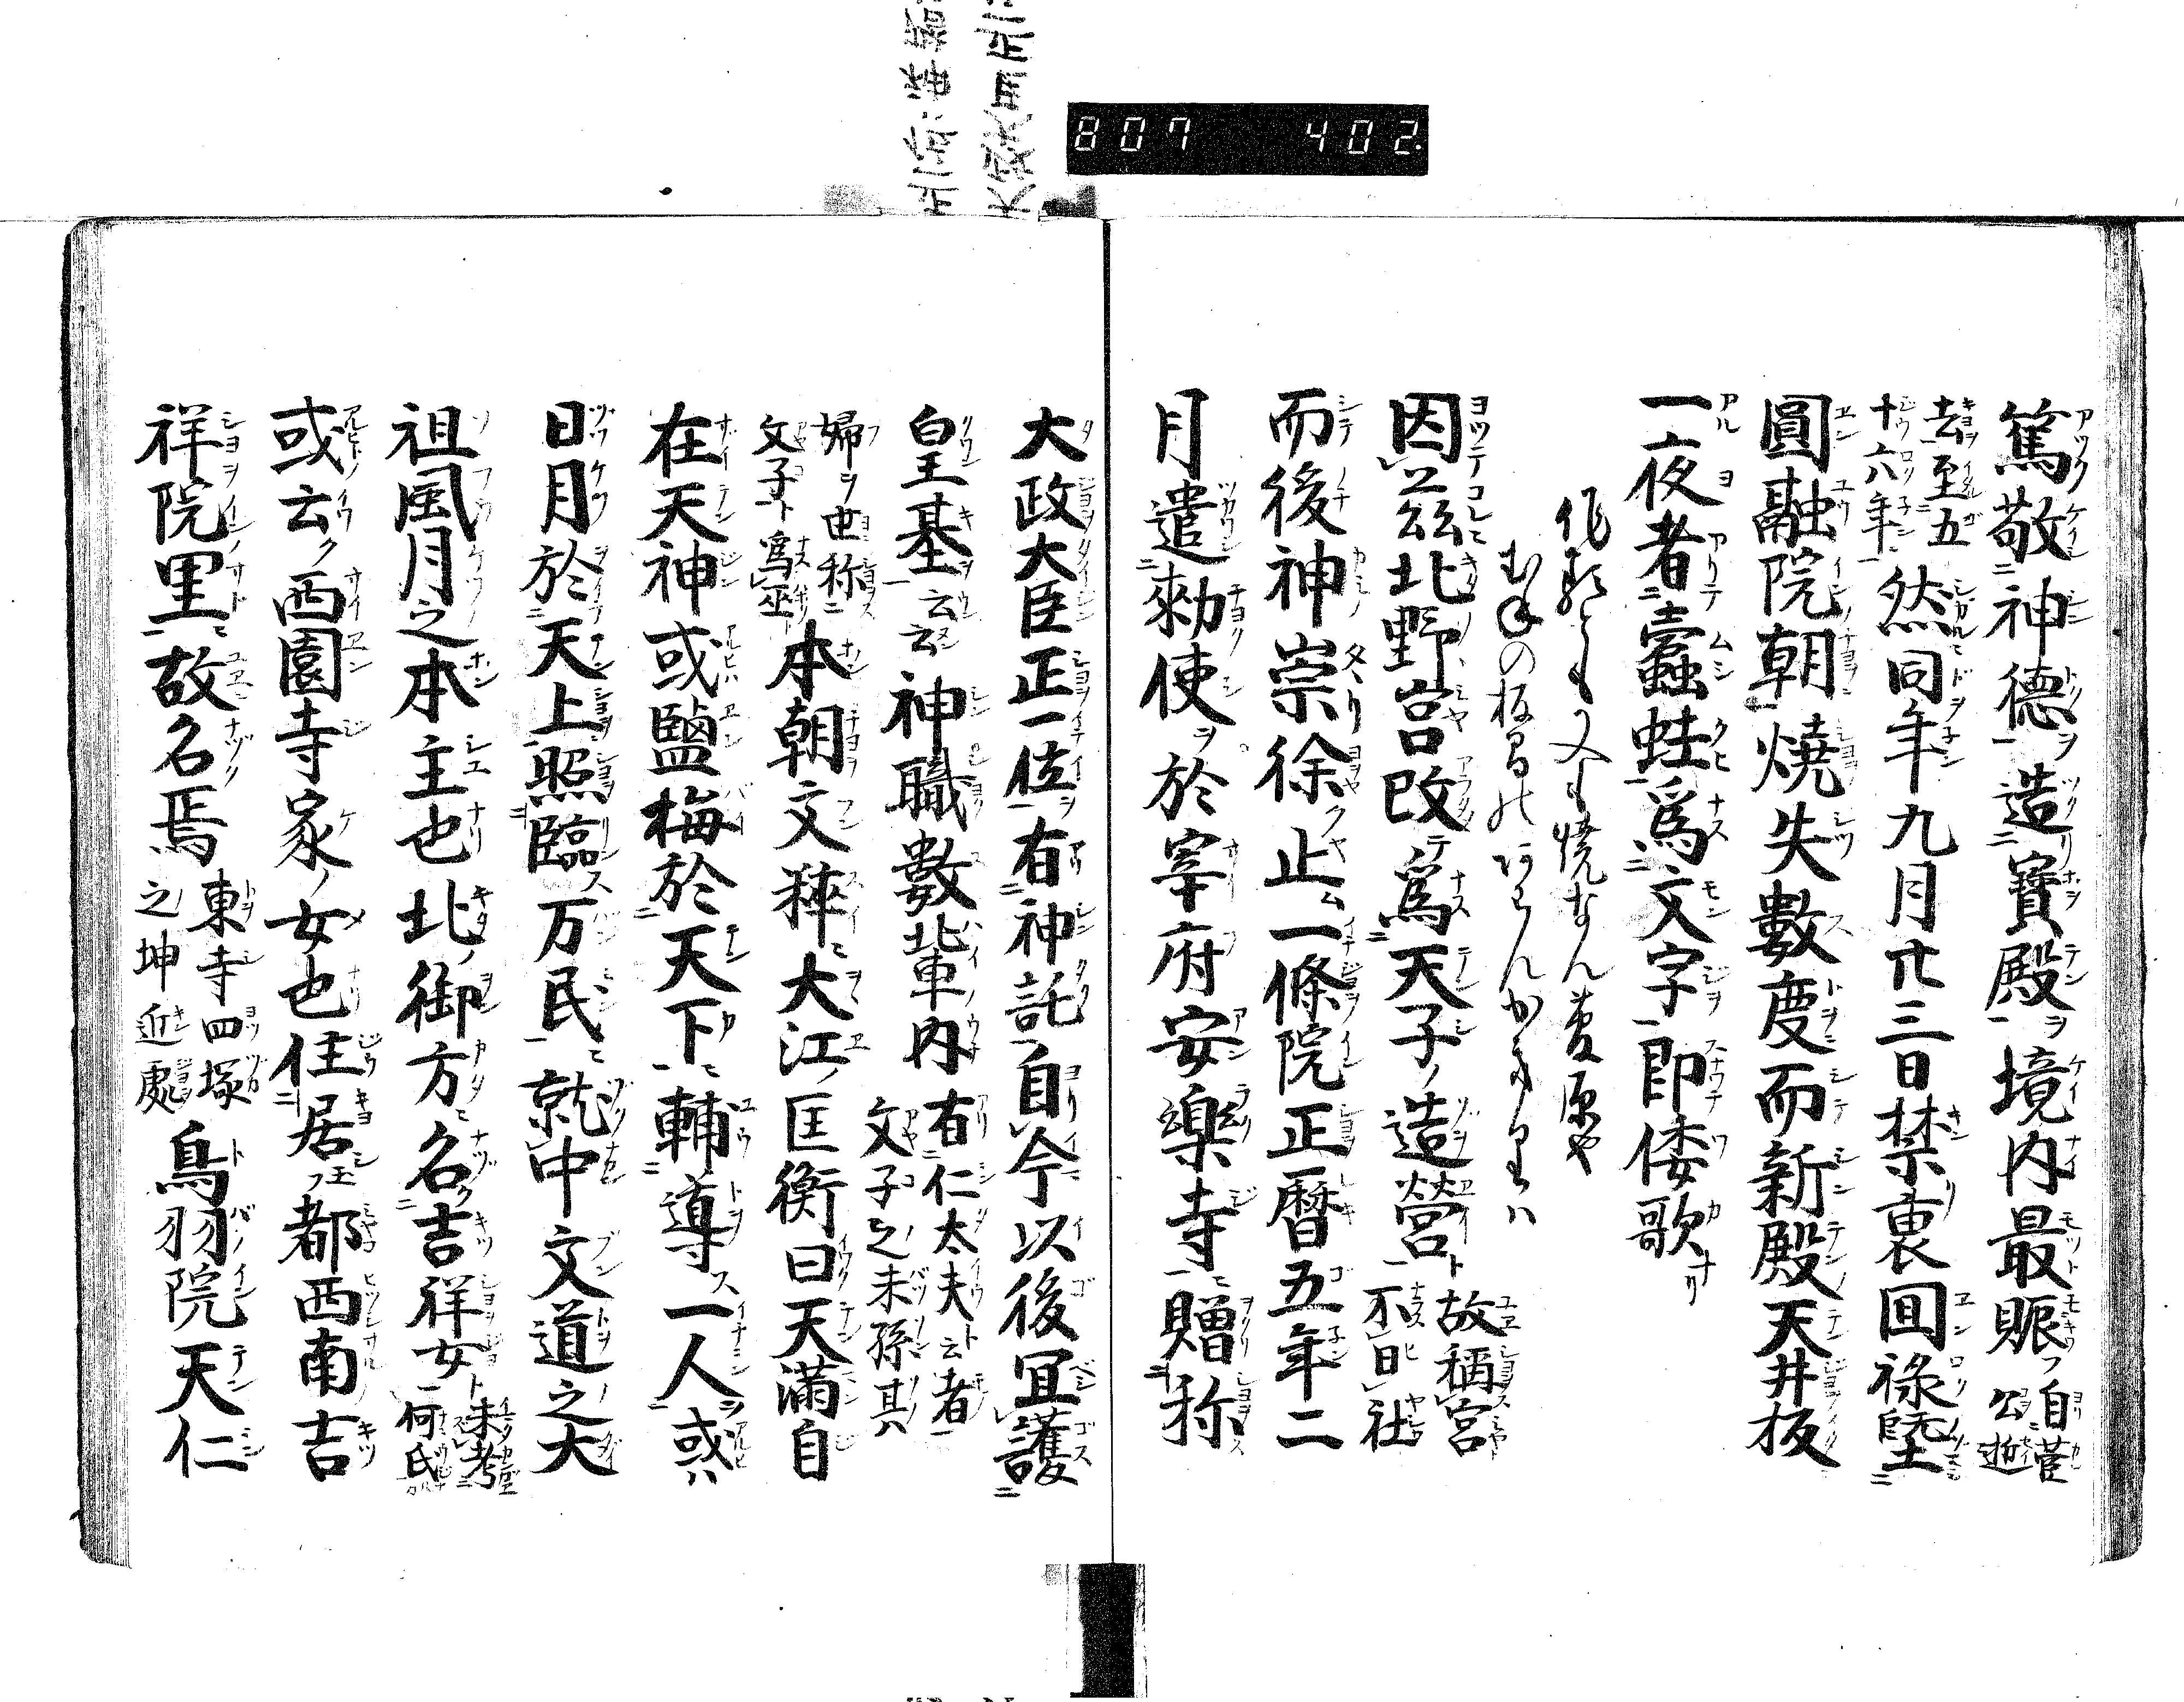 807 402
篤敬神德造寶殿境内最賑自菅公逝
去至五十六年然同年九月廿三日禁裏回祿墜
圓融院朝燒失數度而新殿天井板
一夜者蠹蛀爲文字即倭歌
作るとも又も焼なん菅原や
むねの板間の あらんかきりハ
因茲北野宮改爲天子造營故稱宮不曰社
而後神崇徐止一條院正曆五年二
月遣勅使於宰府安樂寺贈称
大政大臣正一位有神託自今以後宜護
皇基云云神職數輩内有仁太夫云者文子之末孫其
婦世称文子爲巫本朝文粹大江匡衡曰天滿自
在天神或鹽梅於天下輔導一人或
日月於天上照臨万民就中文道之大
祖風月之本主也北御方名吉祥女未考何氏
或云西園寺家女也住居都西南吉
祥院里故名焉東寺四塚之坤近處鳥羽院天仁